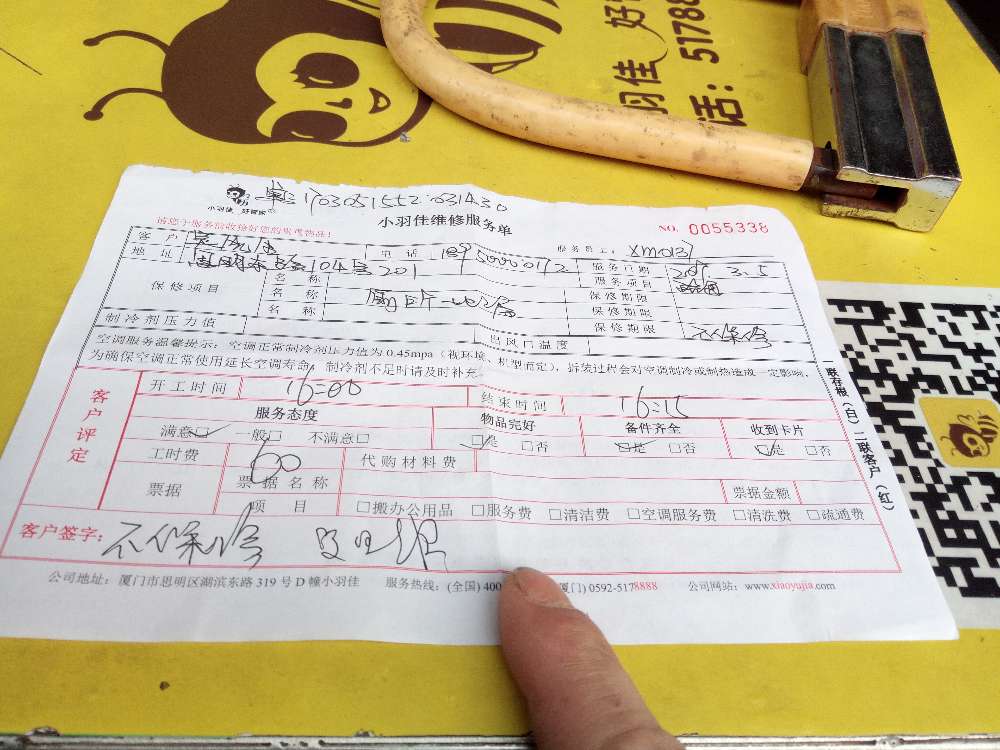 电话: 5178
小羽佳 好管家
1703051552031430
小羽佳维修服务单
请您于服务后收拾好您的贵重物品!
NO. 0055338
客户 电话 服务员工: XM0137
地址 104 201 服务日期 3.5
服务项目
保修项目 名称 保修期限
名称 保修期限
名称 保修期限 不保修
制冷剂压力值 出风口温度
空调服务温馨提示: 空调正常制冷剂压力值为 0.45mpa (视环境、机型而定), 拆装过程会对空调制冷或制热造成一定影响,
为确保空调正常使用延长空调寿命, 制冷剂不足时请及时补充
客户评定
开工时间 16:00 结束时间 16:15
服务态度 物品完好 备件齐全 收到卡片
满意□ 一般□ 不满意□ □是 □否 □是 □否 □是 □否
工时费 60 代购材料费
票据 票据名称 票据金额
项目 □搬办公用品 □服务费 □清洁费 □空调服务费 □清洗费 □疏通费
客户签字: 不保修
公司地址: 厦门市思明区湖滨东路 319 号 D 幢小羽佳 服务热线: (全国) 400 厦门) 0592-5178888 公司网站: www.xiaoyujia.com
一联存根 (白) 二联客户 (红)